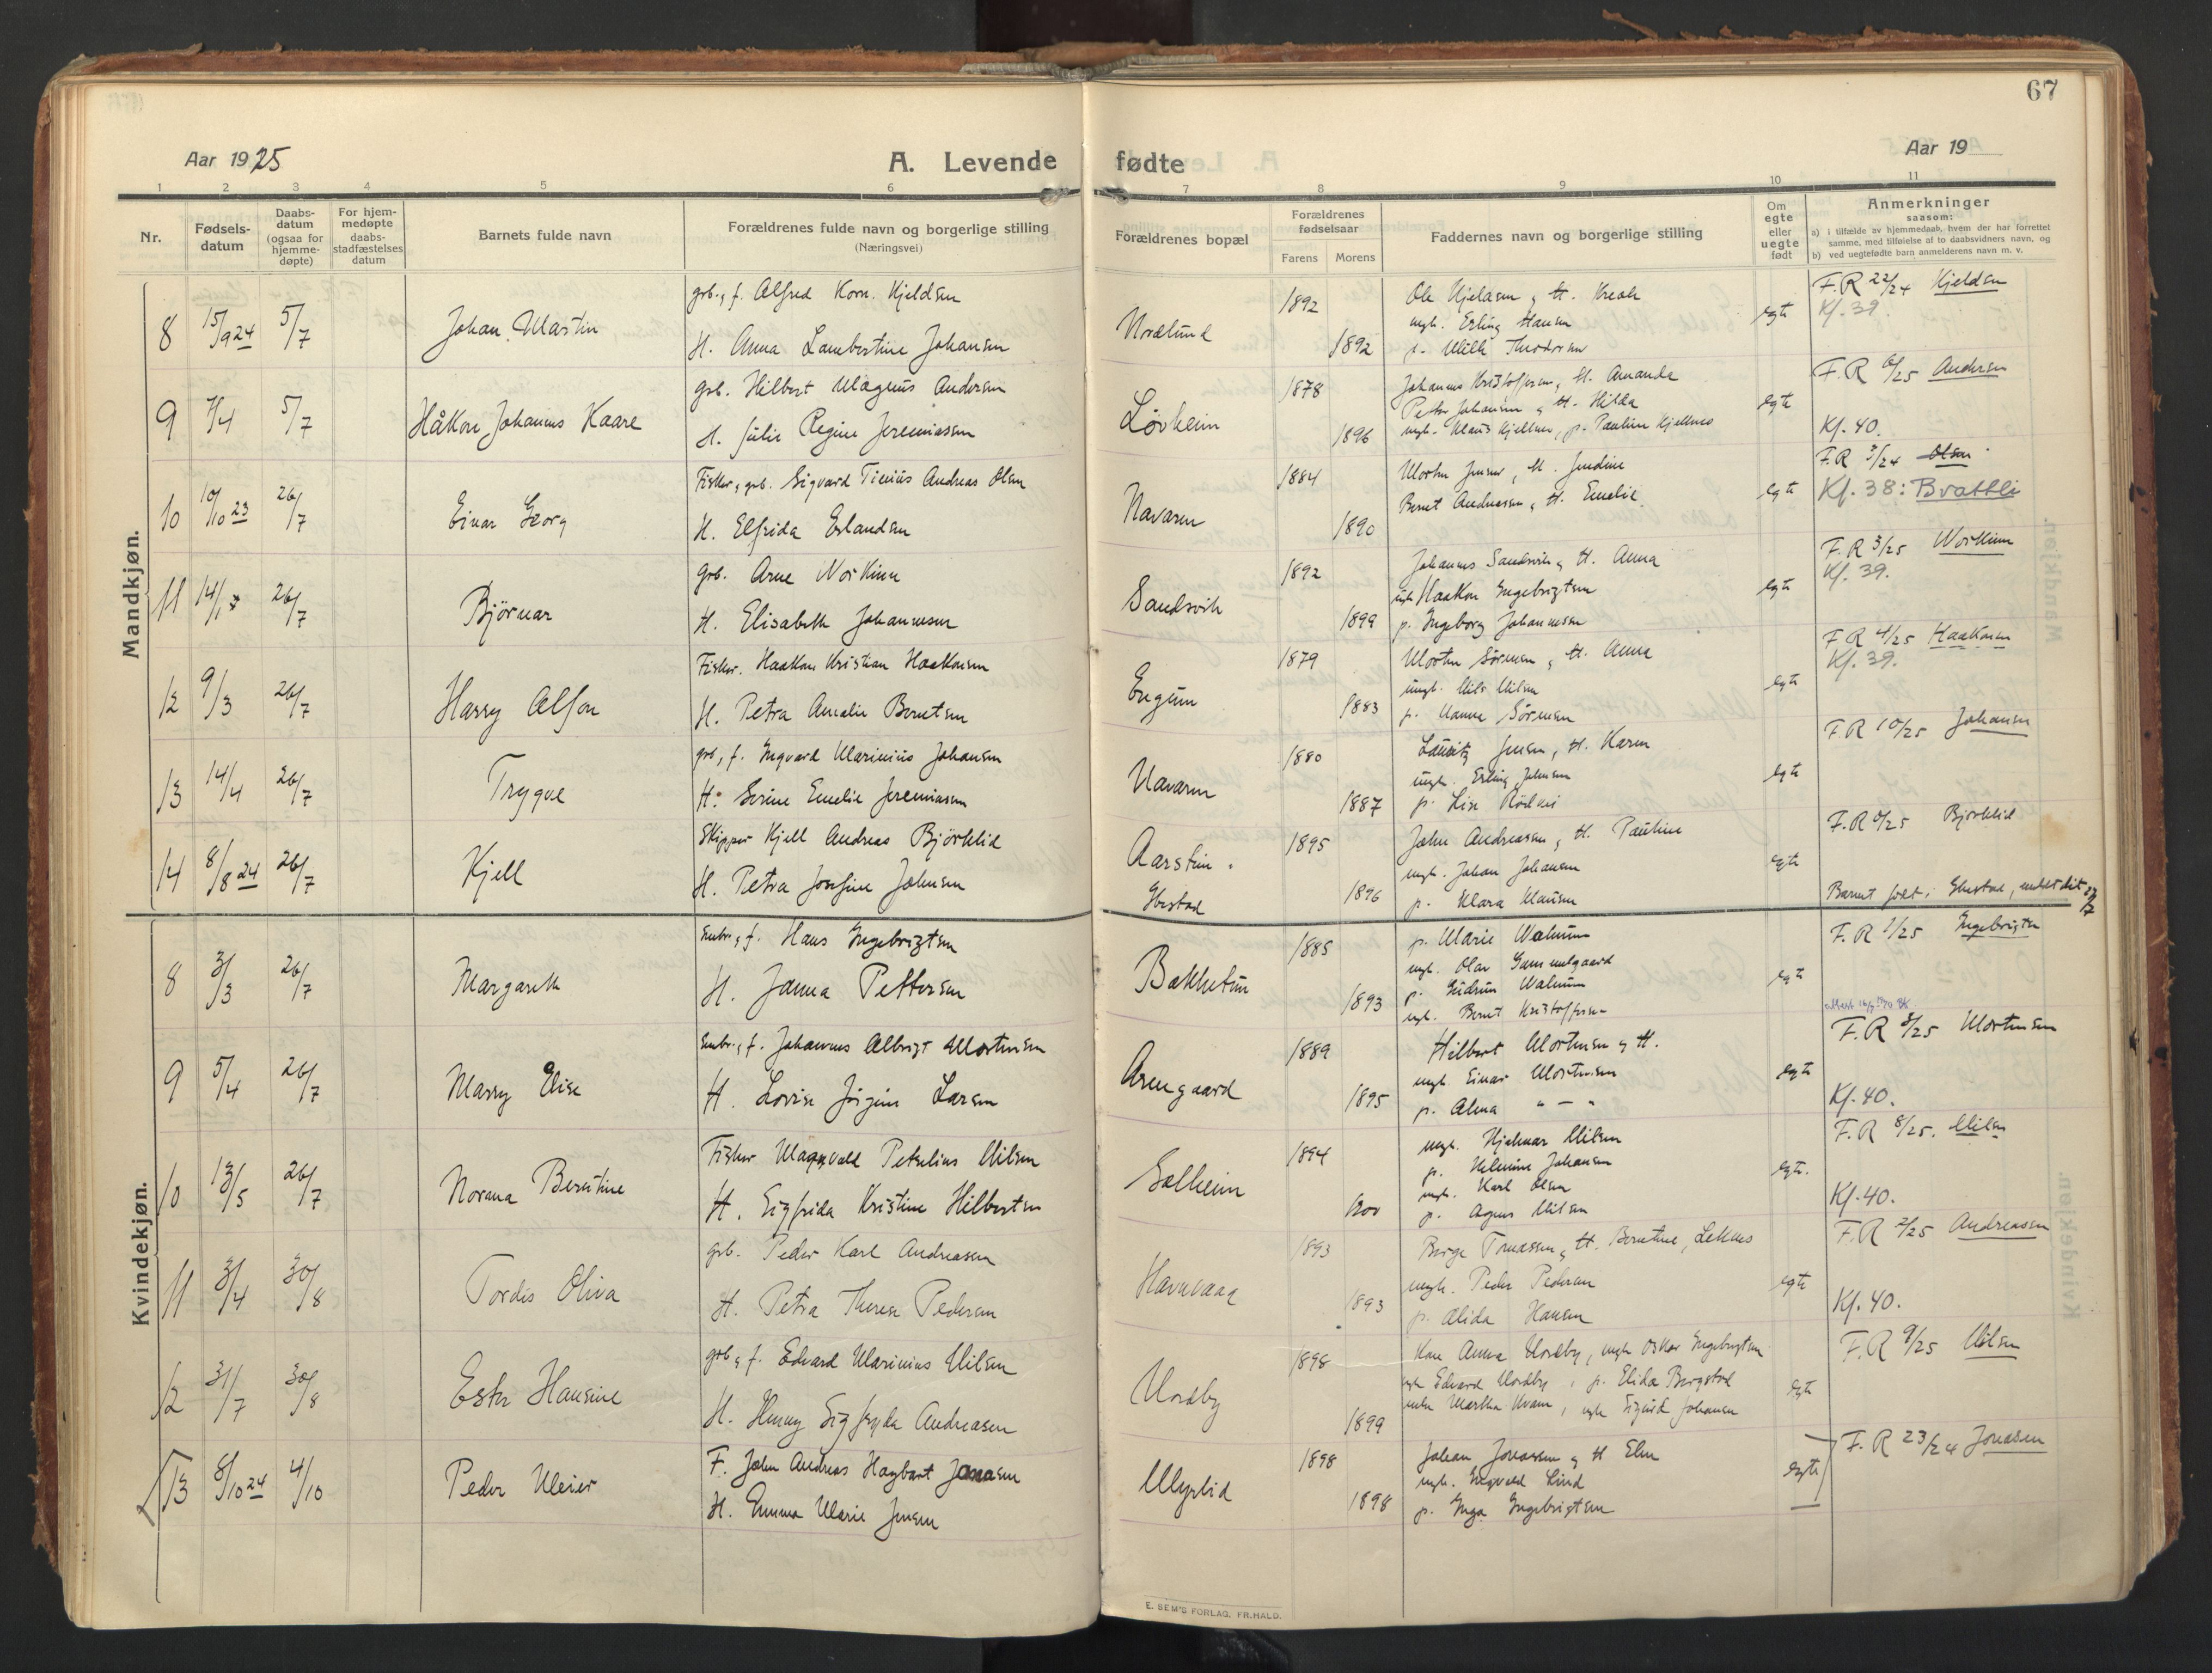 67
Aar 1925
A. Levende fødte
Aar 19
1 2 3 4 5 6 7 8 9 10 11
Nr.
Fødsels-datum
Daabs-datum (ogsaa for hjemme-døpte)
For hjem-medøpte daabs-stadfæstelses datum
Barnets fulde navn
Forældrenes fulde navn og borgerlige stilling (Næringsvei)
Forældrenes bopæl
Forældrenes fødselsaar
Farens Morens
Faddernes navn og borgerlige stilling
Om egte eller uegte født
Anmerkninger
saasom:
a) i tilfælde av hjemmedaab, hvem der har forrettet samme, med tilføielse af to daabsvidners navn, og
b) ved uegtefødte barn anmelderens navn m. v.
Mandkjøn.
8 15/9 24 5/7 Johan Martin
grb. & f. Alfred Korn. Kjeldsen
H. Anna Lambertine Johansen
1892 1892
Erling Hansen
egte
F.R 22/24 Kjeldsen
Kf. 39.
9 7/4 5/7 Håkon Johannes Kaare
grb. Hilbert Magnus Andersen
H. Julie Regine Jeremiassen
Løvheim 1878 1896
Johannes Kristoffersen, H. Amanda
Peter Johansen & H. Hilda
ungk. Klaus Kjellnes, p. Pauline Kjellnes
egte
F.R 6/25 Andersen
Kf. 40.
10 10/10 23 26/7 Einar Georg
Fisker, grb. Sigvard Tinius Andreas Olsen
H. Elfrida Erlandsen
Navaren 1884 1890
Morten Jensen, H. Jendine
Bernt Andreassen, H. Emelie
egte
F.R 3/24 Olsen
Kf. 38: Brattli
11 14/1 26/7 Bjørnar
Grb. Arne Norkinn
H. Elisabeth Johannesen
Sandsvik 1892 1899
Johannes Sandsvik & H. Anna
ungk. Haakon Engebrigtsen
p. Ingeborg Johannesen
egte
F.R 3/25 Norkinn
Kf. 39.
12 9/3 26/7 Harry Alfon
Fisker. Haakon Kristian Haakonsen
H. Petra Amalie Berntsen
Engum 1879 1883
Morten Sørensen & H. Anna
ungk. Nils Nilsen
p. Hanna Sørensen
egte
F.R 4/25 Haakonsen
Kf. 39.
13 14/4 26/7 Trygve
grb, f. Ingvard Marinius Johansen
H. Serine Emelie Jeremiassen
Navaren 1880 1887
Lauritz Jensen, H. Karen
ungk. Erling Johnsen
p. Lise
egte
F.R 10/25 Johansen
14 8/8 24 26/7 Kjell
Skipper Kjell Andreas Bjørklid
H. Petra Josefine Johnsen
Aarstein.
Ibestad
1895 1896
John Andreassen, H. Pauline
ungk. Johan Johansen
p. Klara Klausen
egte
F.R 9/25 Bjørklid
Barnet født i Ibestad, meldt dit 27/7
Kvindekjøn.
8 3/3 26/7 Margareth
Smbr. & f. Hans Engebrigtsen
H. Janna Pettersen
Bakketun 1885 1893
p. Marie Walnum
ungk. Olav Gammelgaard
p. Gudrun Walnum
ungk. Bernt Kristoffersen
egte
F.R 1/25 Engebrigtsen
9 5/4 26/7 Marry Elise
Smbr. & f. Johannes Albrigt Mortensen
H. Lovise Jørgine Larsen
Arengaard 1889 1895
Hilbert Mortensen & H.
ungk. Einar Mortensen
p. Alma " — "
egte
F.R 3/25 Mortensen
Kf. 40.
10 13/5 26/7 Norana Berntine
Fisker Magnvald Petelius Nilsen
H. Sigfrida Kristine Hilbertsen
Solheim 1894 1900
ungk. Hjalmar Nilsen
p. Helmine Johansen
ungk. Karl Olsen
p. Agnes Nilsen
egte.
F.R 8/25. Nilsen
Kf. 40.
11 3/4 30/8 Tordis Oliva
grb. Peder Karl Andreassen
H. Petra Therese Pedersen
Havnvaag 1893 1893
Børge Tomassen & H. Berntine, Leknes
ungk. Peder Pedersen
p. Alida Hansen
egte
F.R 2/25 Andreassen
Kf. 40.
12 31/7 30/8 Ester Hansine
grb & f. Edvard Marinius Nilsen
H. Henny Sigfryda Andreasen
Nordby 1898 1899
Kone Anna Nordby, ungk Oskar Engebrigtsen
ungk Edvard Nordby, p. Elida Bergstad
enke Martha Kvam, ungk Sigurd Johansen
egte
F.R 9/25 Nilsen
13 8/10 24 4/10 Peder Meier
F. John Andreas Hagbart Jonasen
H. Emma Marie Jensen
Myrlid 1898 1898
Johan Jonassen & H Elen
ungk. Ingvald Lind
p. Inga Engebrigtsen
egte
F.R 23/24 Jonasen
E. SEM'S FORLAG, FR.HALD.